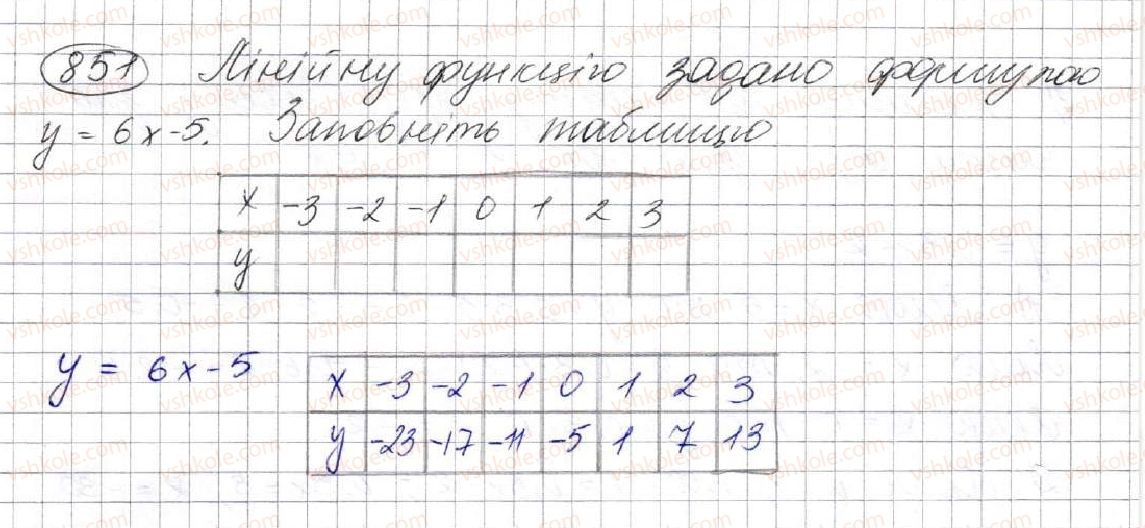 851 Лінійну функцію задано формулою
y = 6x-5. Заповніть таблицю
x -3 -2 -1 0 1 2 3
y
y = 6x-5
x -3 -2 -1 0 1 2 3
y -23 -17 -11 -5 1 7 13
vshkole.com